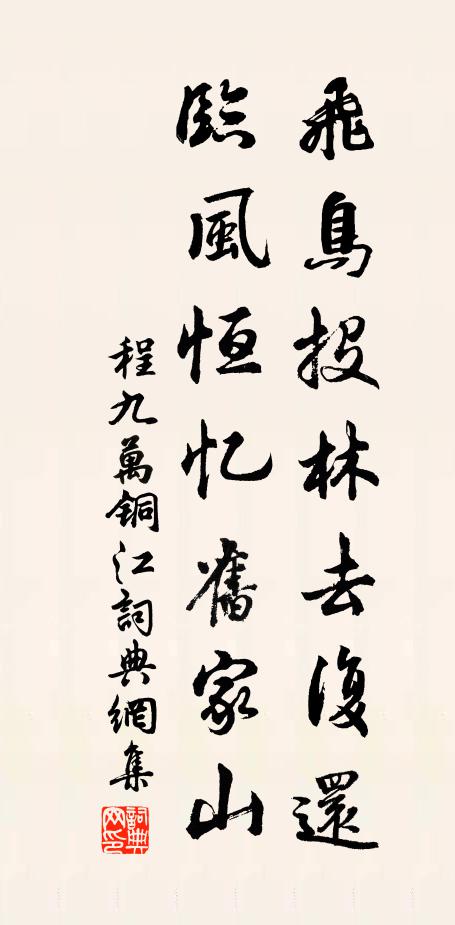 飛鳥投林去復還
臨風恒忆舊家山
程九萬銅江詞典網集
詞典网印